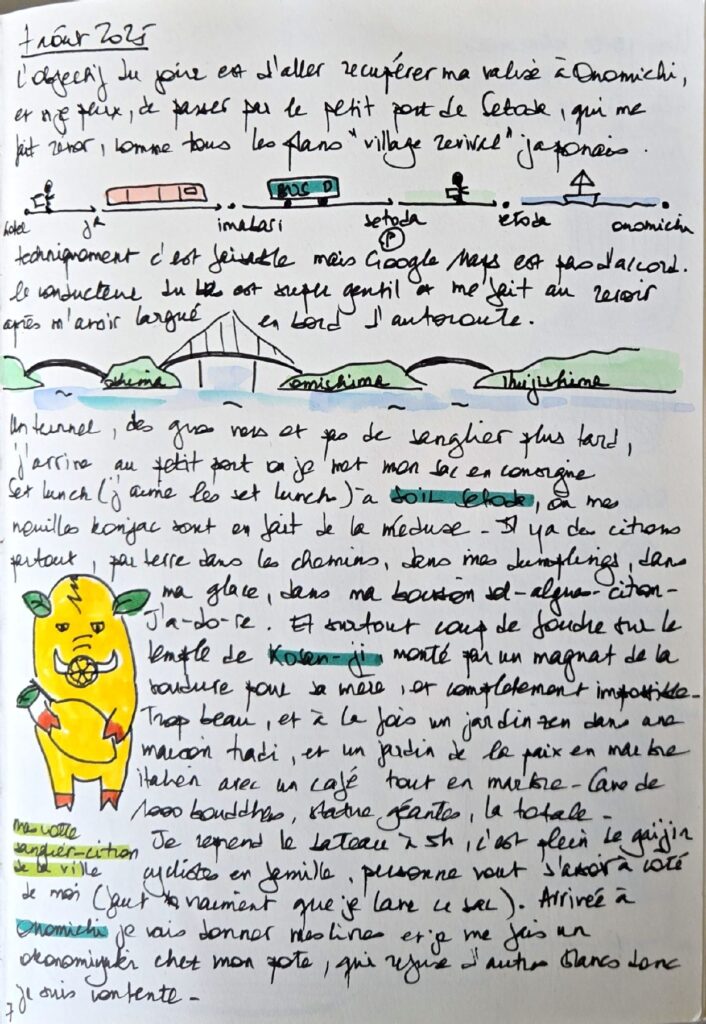 7 août 2025
L'objectif du jour est d'aller récupérer ma valise à Onomichi,
et si je peux, de passer par le petit port de Setoda, qui me
fait rêver, comme tous les plans "village revival" japonais.
hotel JR imabari setoda setoda onomichi
BUS
P
techniquement c'est faisable mais Google Maps est pas d'accord.
le conducteur du bus est super gentil et me fait au revoir
après m'avoir largué en bord d'autoroute.
oshima omishima Ikujishima
Un tunnel, des gros vers et pas de sanglier plus tard,
j'arrive au petit port où je met mon sac en consigne
Set lunch (j'aime les set lunch) à SOIL Setoda, où mes
nouilles konjac sont en fait de la méduse - Il y a des citrons
partout, par terre dans les chemins, dans mes dumplings, dans
ma glace, dans ma boisson sel-algue-citron-
J'a-do-re. Et surtout coup de foudre sur le
temple de Kosan-ji monté par un magnat de la
soudure pour sa mère, et complètement impossible-
Trop beau, et à la fois un jardin zen dans une
maison tradi, et un jardin de la paix en marbre
italien avec un café tout en marbre - Cave de
1000 bouddhas, statue géantes, la totale -
mascotte
sanglier-citron
de la ville
Je reprend le bateau à 5h, c'est plein de gaijin
cyclistes en famille, personne veut s'assoir à coté
de moi (faut vraiment que je lave ce sac). Arrivée à
Onomichi je vais donner mes livres et je me fais un
okonomiyaki chez mon pote, qui refuse d'autres blancs donc
je suis contente -
7